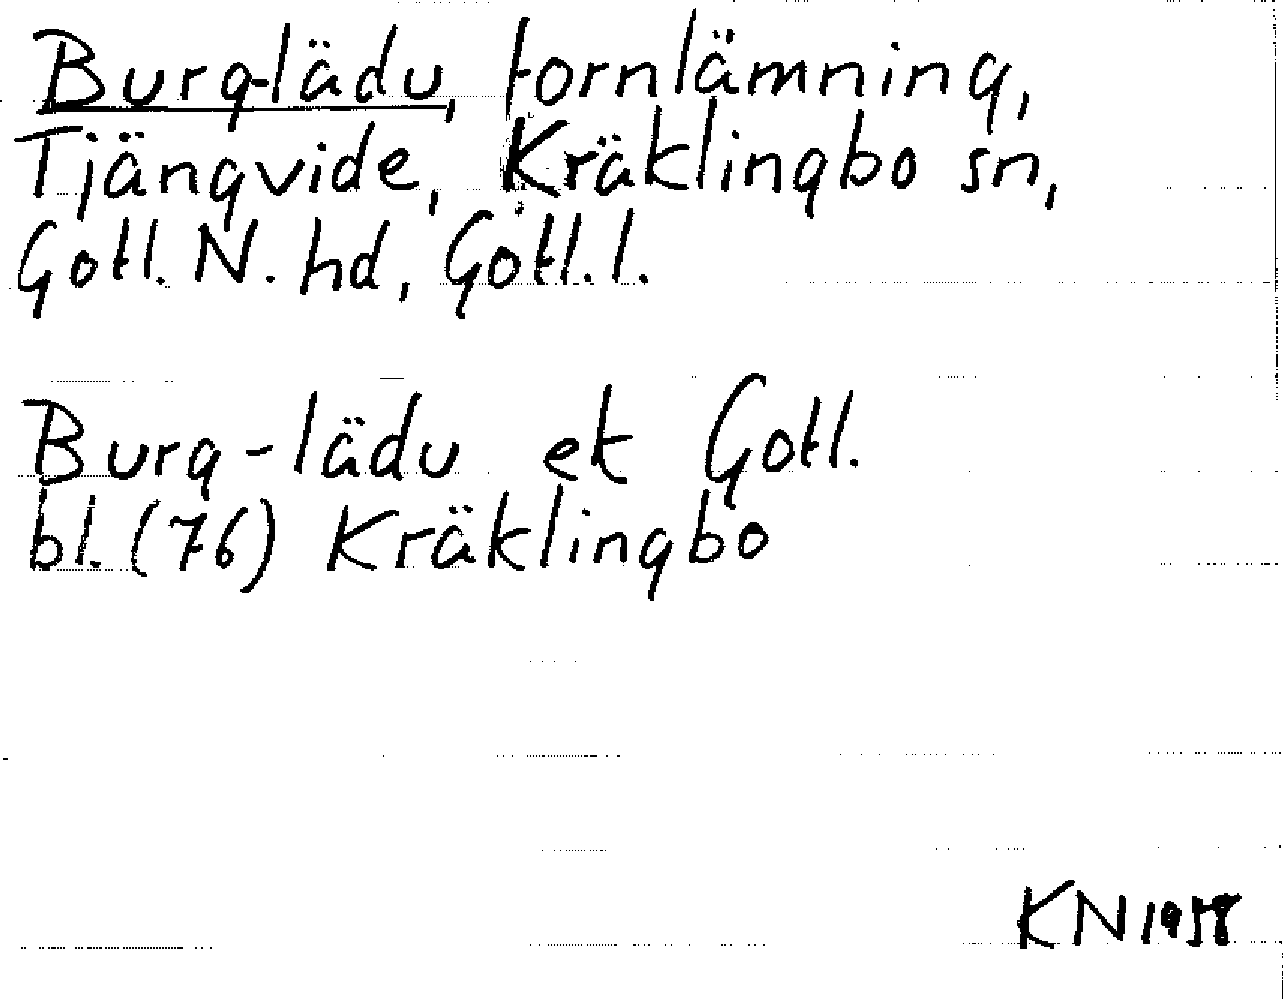 Burg-lädu, fornlämning,
Tjängvide, Kräklingbo sn,
Gotl. N. hd, Gotl. l.
Burg-lädu ek Gotl.
bl. (76) Kräklingbo
KN 1958